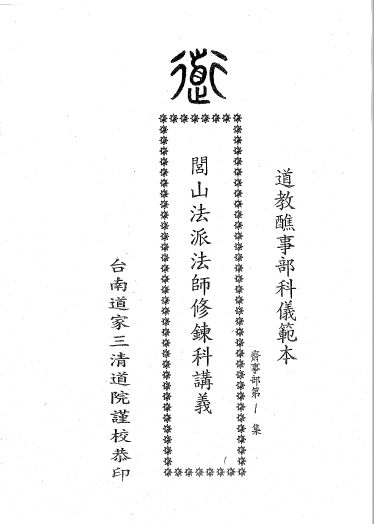 道教醮事部科儀範本
齋事部第1集
閭山法派法師修鍊科講義
台南道家三清道院謹校恭印